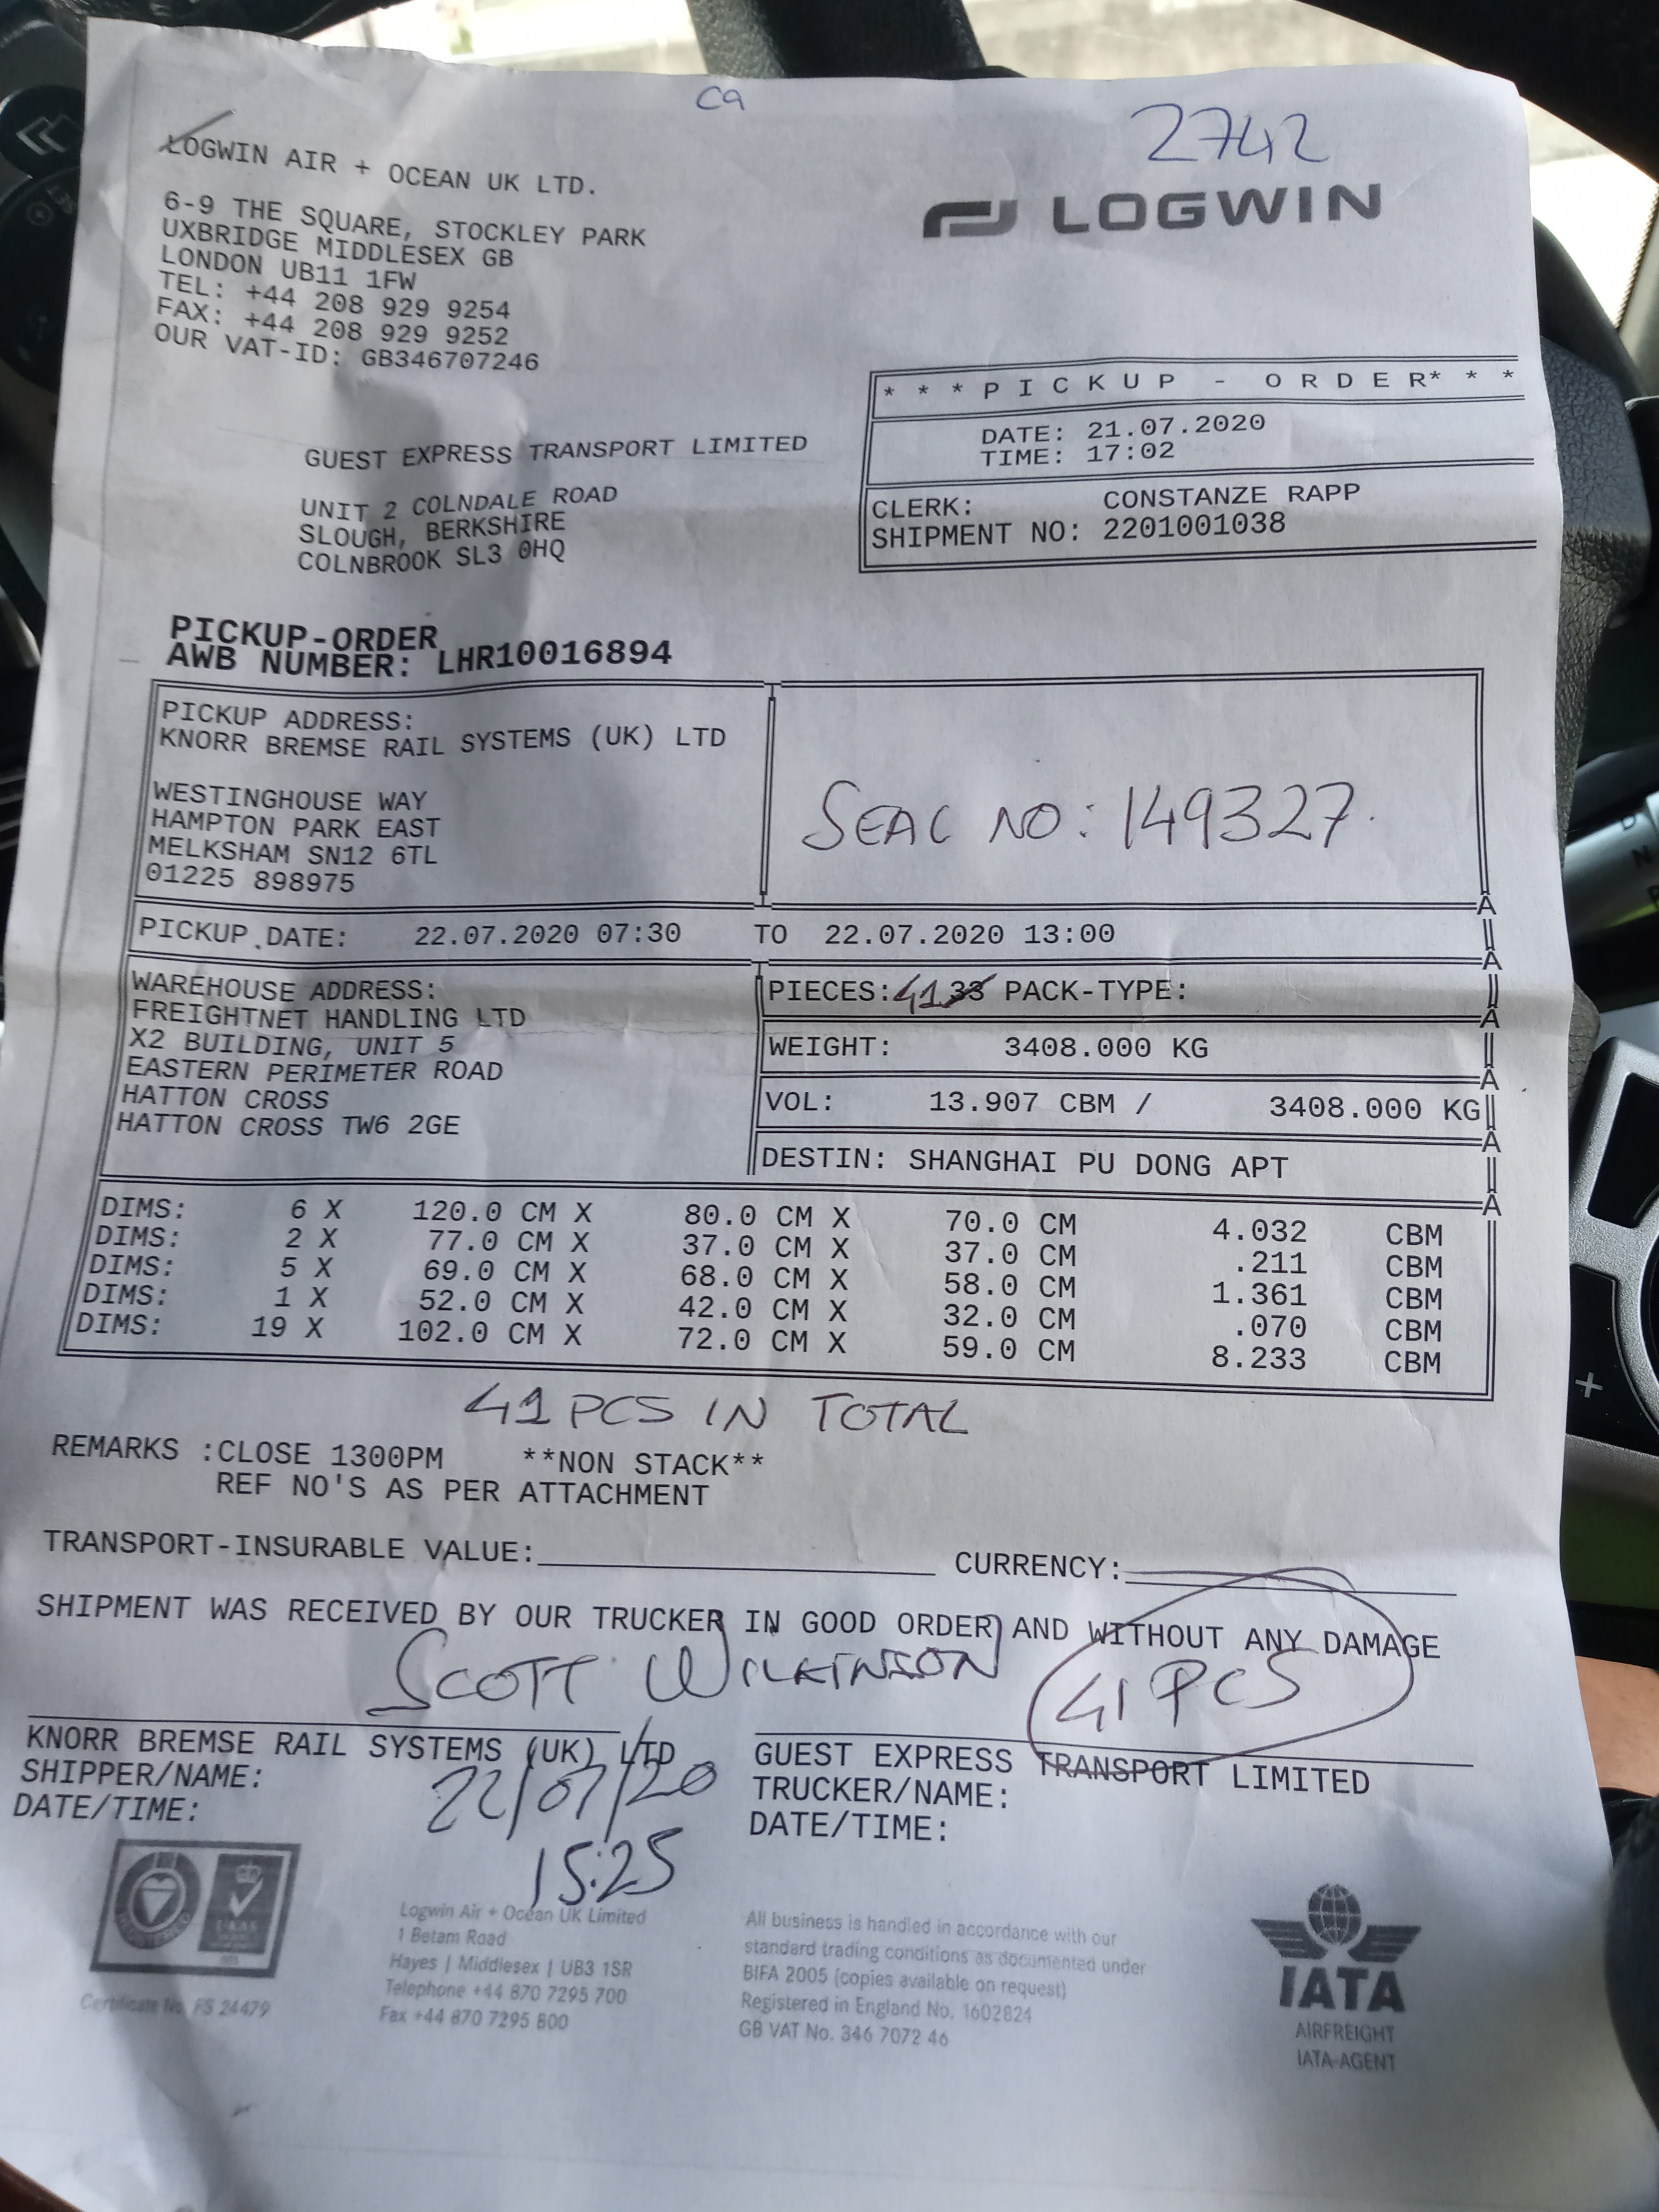 C9
2742
LOGWIN AIR + OCEAN UK LTD.
LOGWIN
6-9 THE SQUARE, STOCKLEY PARK
UXBRIDGE MIDDLESEX GB
LONDON UB11 1FW
TEL: +44 208 929 9254
FAX: +44 208 929 9252
OUR VAT-ID: GB346707246
* * * P I C K U P - O R D E R * * *
DATE: 21.07.2020
TIME: 17:02
CLERK: CONSTANZE RAPP
SHIPMENT NO: 2201001038
GUEST EXPRESS TRANSPORT LIMITED
UNIT 2 COLNDALE ROAD
SLOUGH, BERKSHIRE
COLNBROOK SL3 0HQ
PICKUP-ORDER
AWB NUMBER: LHR10016894
PICKUP ADDRESS:
KNORR BREMSE RAIL SYSTEMS (UK) LTD
WESTINGHOUSE WAY
HAMPTON PARK EAST
MELKSHAM SN12 6TL
01225 898975
SEAL NO: 149327.
PICKUP DATE: 22.07.2020 07:30 TO 22.07.2020 13:00
WAREHOUSE ADDRESS:
FREIGHTNET HANDLING LTD
X2 BUILDING, UNIT 5
EASTERN PERIMETER ROAD
HATTON CROSS
HATTON CROSS TW6 2GE
PIECES: 41 33 PACK-TYPE:
WEIGHT: 3408.000 KG
VOL: 13.907 CBM / 3408.000 KG
DESTIN: SHANGHAI PU DONG APT
DIMS: 6 X 120.0 CM X 80.0 CM X 70.0 CM 4.032 CBM
DIMS: 2 X 77.0 CM X 37.0 CM X 37.0 CM .211 CBM
DIMS: 5 X 69.0 CM X 68.0 CM X 58.0 CM 1.361 CBM
DIMS: 1 X 52.0 CM X 42.0 CM X 32.0 CM .070 CBM
DIMS: 19 X 102.0 CM X 72.0 CM X 59.0 CM 8.233 CBM
41 PCS IN TOTAL
REMARKS :CLOSE 1300PM **NON STACK**
REF NO'S AS PER ATTACHMENT
TRANSPORT-INSURABLE VALUE: CURRENCY:
SHIPMENT WAS RECEIVED BY OUR TRUCKER IN GOOD ORDER AND WITHOUT ANY DAMAGE
SCOTT WILKINSON
41 PCS
KNORR BREMSE RAIL SYSTEMS (UK) LTD
SHIPPER/NAME:
DATE/TIME:
22/07/20
15:25
GUEST EXPRESS TRANSPORT LIMITED
TRUCKER/NAME:
DATE/TIME:
Certificate No. FS 24479
Logwin Air + Ocean UK Limited
1 Betam Road
Hayes | Middlesex | UB3 1SR
Telephone +44 870 7295 700
Fax +44 870 7295 800
All business is handled in accordance with our
standard trading conditions as documented under
BIFA 2005 (copies available on request)
Registered in England No. 1602824
GB VAT No. 346 7072 46
IATA
AIRFREIGHT
IATA-AGENT